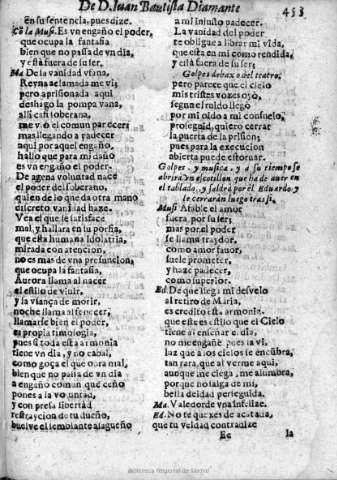 De D. Iuan Bautista Diamante 453
en su sentencia, pues dize.
Co la Musi. Es vn engaño el poder,
que ocupa la fantasia
bien que no passa de vn dia,
y està fuera de ser.
Ma. De la vanidad vfana,
Reyna aclamada me vi;
pero aprisionada aqui
deshago la pompa vana,
alli casi soberana,
me viò el comun parecer;
mas llegando a padecer
aqui por aquel engaño,
hallo que para mi daño
es vn engaño el poder.
De agena voluntad nace
el poder del soberano,
quien de lo que da otra mano
discreto vanidad haze.
Vea el que le satisface
mal, y hallara en su porfia,
que esta humana idolatria,
mirada con atencion,
no es mas de vna presuncion,
que ocupa la fantasia.
Aurora llama al nacer
el estilo de viuir,
y la viança de morir,
noche llama al fenecer,
llamarse bien el poder,
es propia
pues si toda esta armonia
tiene vn dia, y no cabal,
como goça el que obra mal,
bien que no passa de vn dia
a engaño comun què ceño
pones a la voluntad,
y con presa libertad
de tu dueño,
buelve el semblante alagueño
a mi injusto padecer.
La vanidad del poder
te obligue a librar mi vida,
que està en mi como rendida,
y està fuera de su ser;
Golpes debaxo del teatro.
pero parece que el cielo
mis tristes vozes oyò,
segun el ruido llegò
por mi oido a mi consuelo,
proseguid, quiero cerrar
la puerta de la prision;
pues para la execucion
abierta puede estoruar.
Golpes, y musica, y a su tiempo se
abrirà vn escotillon que ha de auer en
el tablado, y saldrà por èl Eduardo y
le cerraràn luego tras si.
Musi Afable el amor
fuera, por su ser;
mas por el poder
se llama traydor,
como amor fauor,
suele prometer,
y haze padecer,
como superior.
Ed. De que llega mi desvelo
al retiro de Maria,
es credito esta armonia.
que este es estilo que el Cielo
tiene al enseñar el dia,
no me engañè pues la vi,
luz que a los cielos se encubra,
tan rara, que al verme aqui,
aunque me ciega, me alumbra,
porque no salga de mi,
bella deidad perseguida.
Ma. Valedor de vna infelize.
Ed. No te quexes de
que tu veldad contradize
Ee la
Biblioteca Regional de Madrid